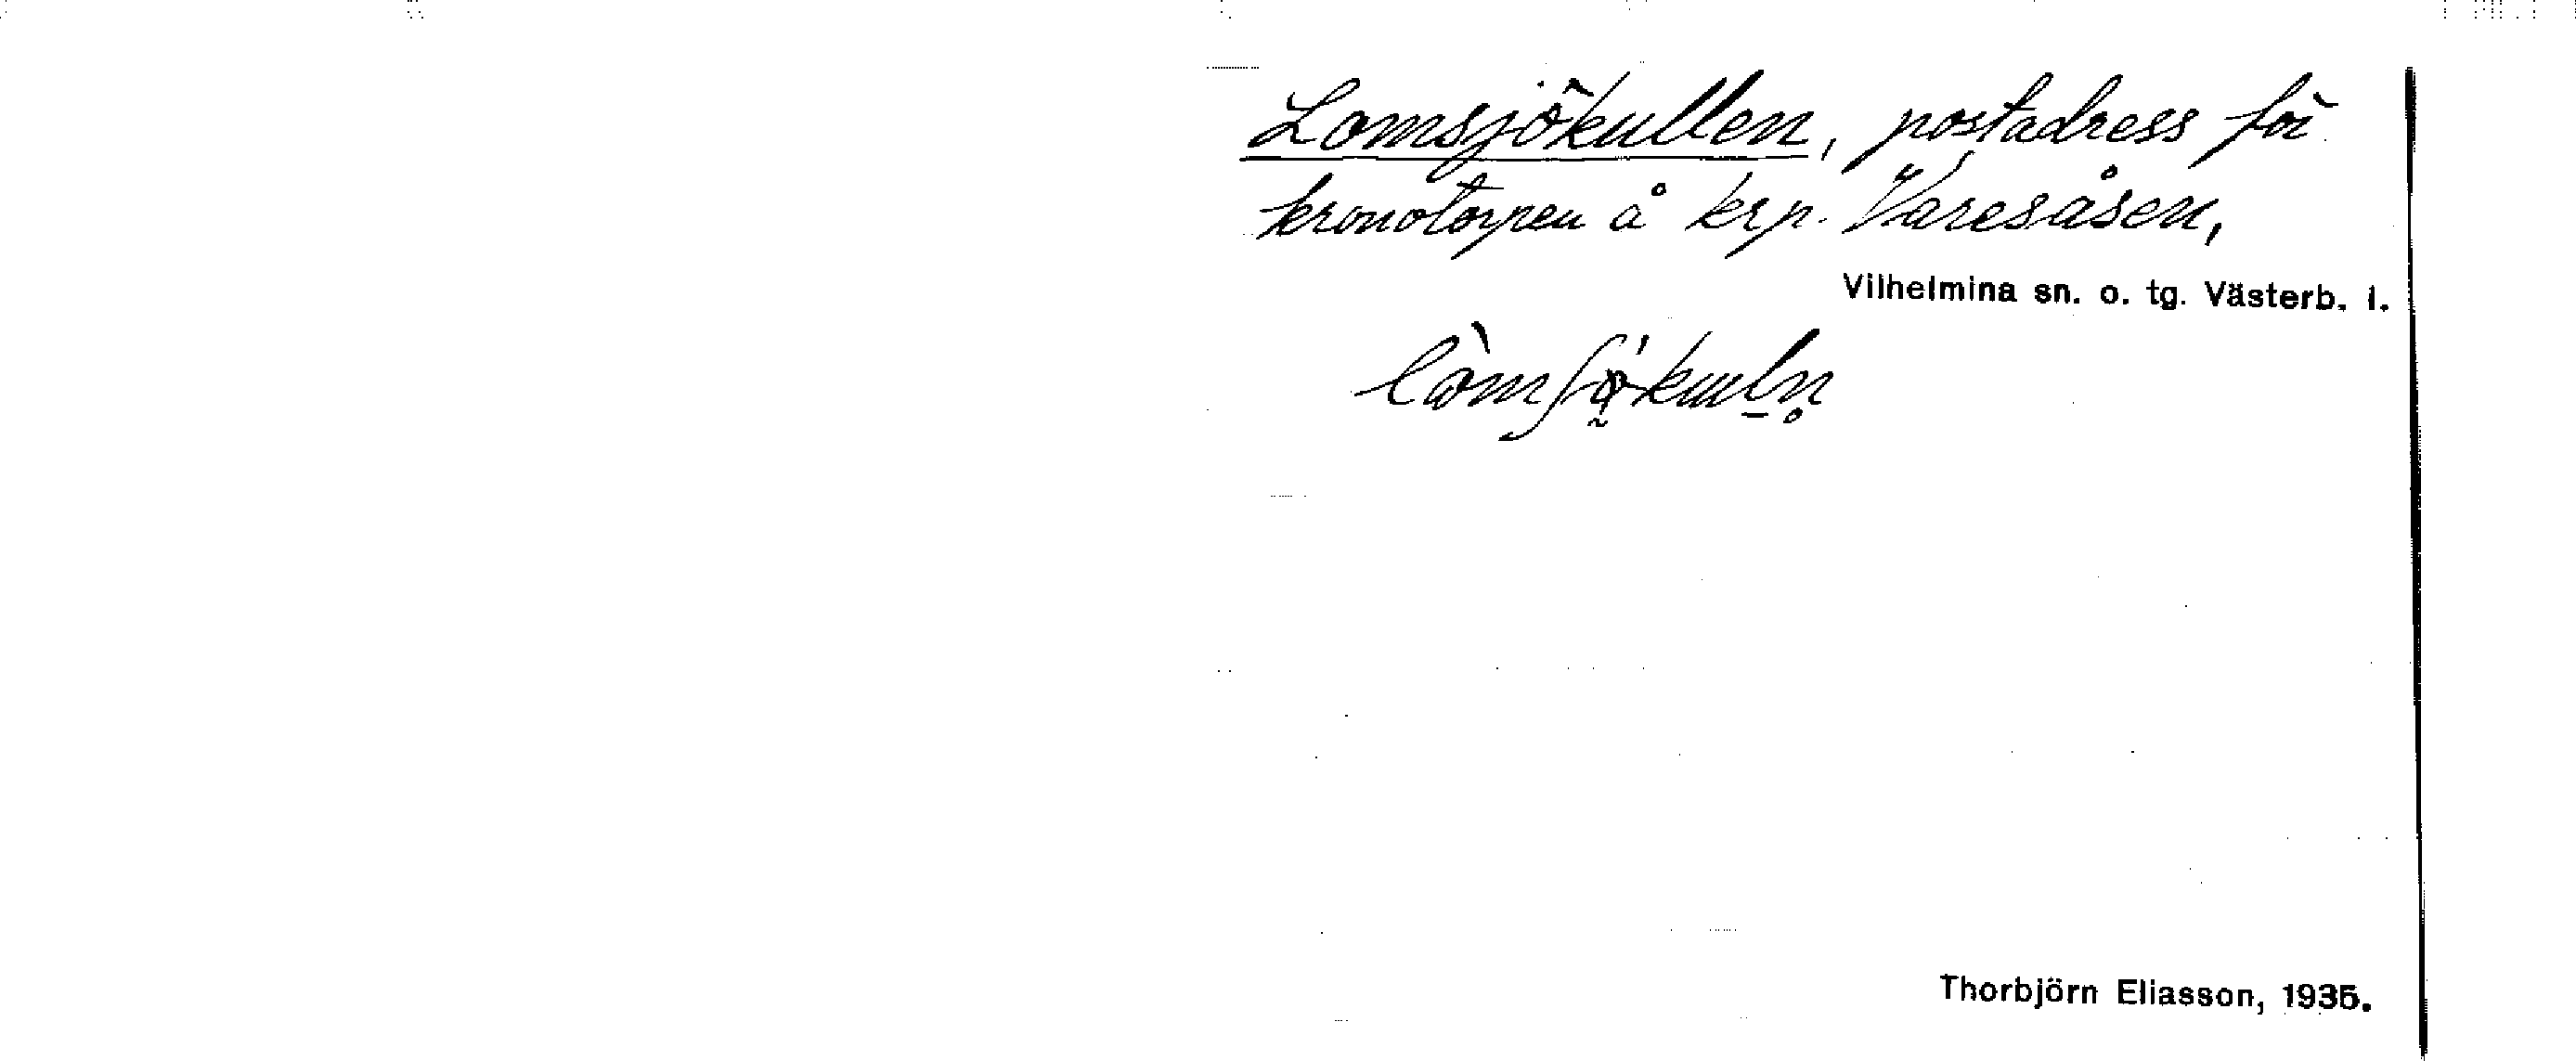 Lomsjökullen, postadress för
kronotorpen å krp. Varesåsen,
Vilhelmina sn. o. tg. Västerb. l.
Thorbjörn Eliasson, 1935.